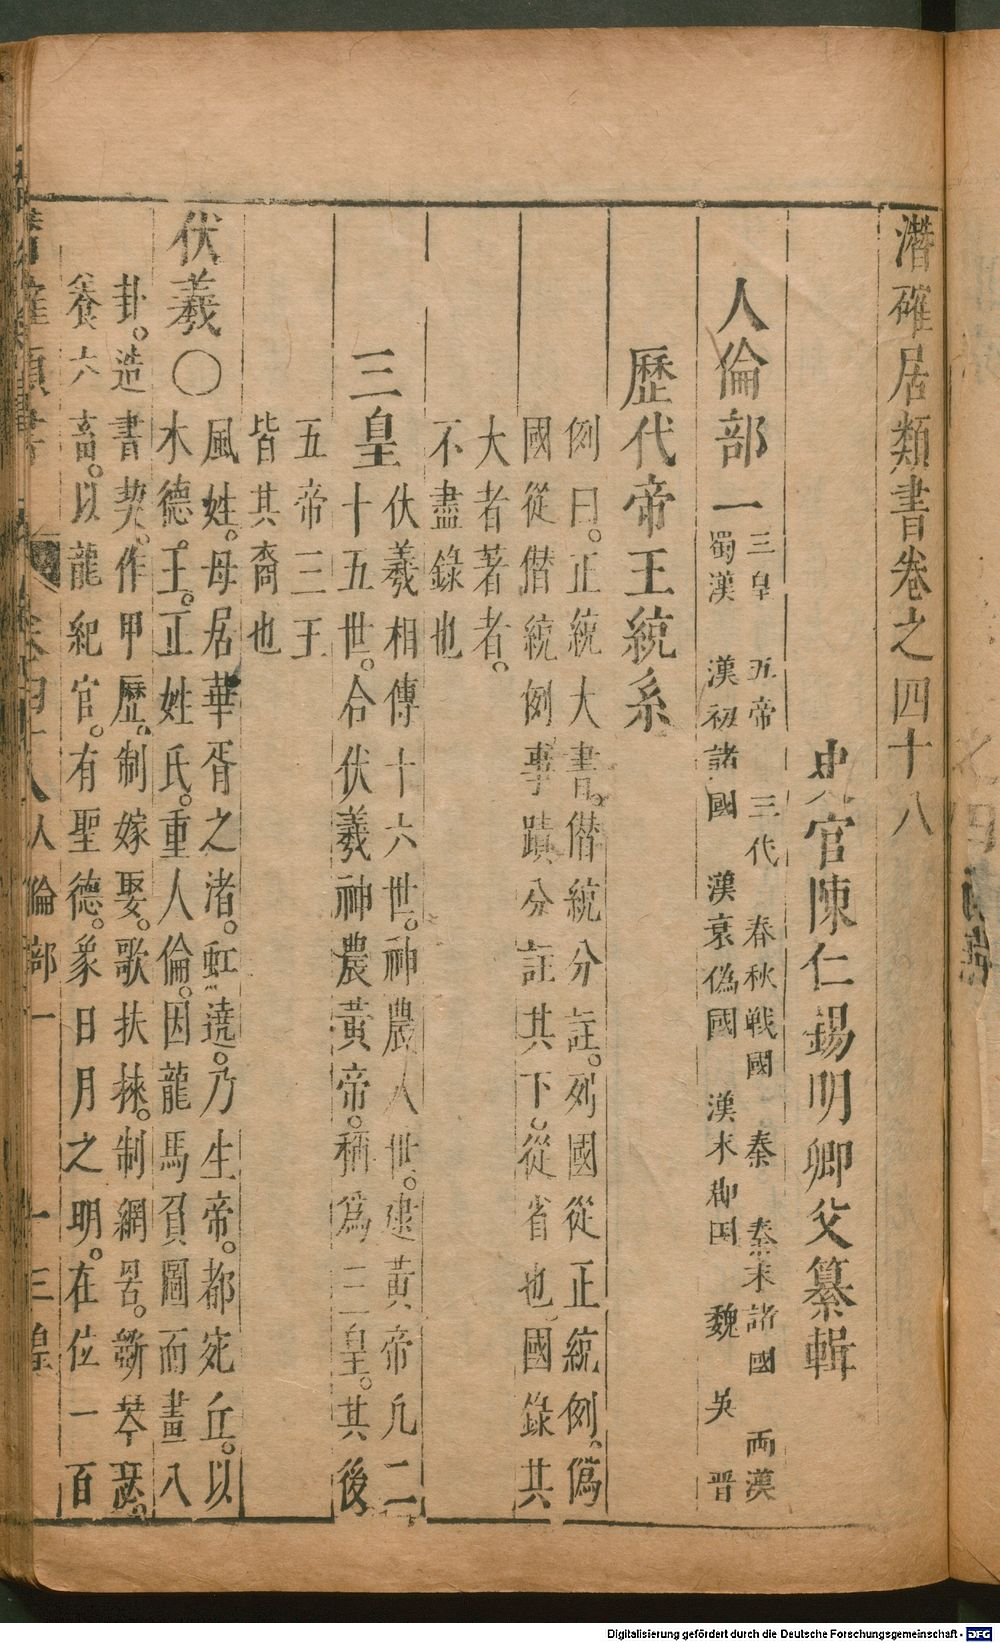 潛確居類書卷之四十八
史官陳仁錫明卿父纂輯
人倫部一
三皇　五帝　三代　春秋戰國　秦　秦末諸國　兩漢
蜀漢　漢初諸國　漢哀偽國　漢末　魏　吳　晋
歷代帝王統系
例曰。正統大書。僣統分註。列國從正統例。僞
國從僣統例事蹟分註其下。從省也國錄其
大者著者。
不盡錄也
三皇
伏羲相傳十六世。神農八世。逮黃帝凡二
十五世。合伏羲神農黃帝。稱爲三皇。其後
五帝三王
皆其裔也
伏羲〇
風姓。母居華胥之渚。虹遶。乃生帝。都宛丘。以
木德。王。正姓氏。重人倫。因龍馬負圖而畫八
卦。造書契。作甲歷。制嫁娶。歌扶𢓜。制網罟。斵琴瑟。
養六畜。以龍紀官。有聖德。象日月之明。在位一百
人倫部一　一　三皇
Digitalisierung gefördert durch die Deutsche Forschungsgemeinschaft - DFG